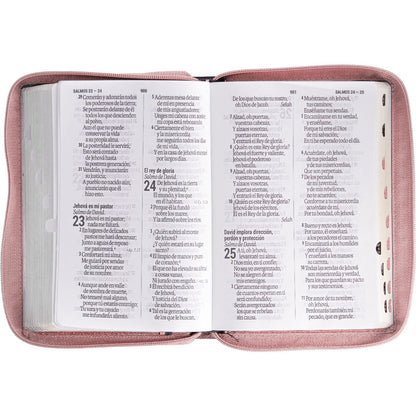 SALMOS 22 — 24
29 Comerán y adorarán todos
los poderosos de la tierra;
Se postrarán delante de él
todos los que descienden
al polvo,
Aun el que no puede
conservar la vida
a su propia alma.
30 La posteridad le servirá;
Esto será contado
de Jehová hasta
la postrera generación.
31 Vendrán, y anunciarán
su justicia;
A pueblo no nacido aún,
anunciarán que él
hizo esto.
Jehová es mi pastor
Salmo de David.
23 Jehová es mi pastor;
nada me faltará.
2 En lugares de delicados
pastos me hará descansar;
Junto a aguas de reposo
me pastoreará.
3 Confortará mi alma;
Me guiará por sendas
de justicia por amor
de su nombre.
4 Aunque ande en valle
de sombra de muerte,
No temeré mal alguno,
porque tú estarás conmigo;
Tu vara y tu cayado
me infundirán aliento.
980
5 Aderezas mesa delante
de mí en presencia
de mis angustiadores;
Unges mi cabeza con aceite;
mi copa está rebosando.
6 Ciertamente el bien
y la misericordia
me seguirán todos los días
de mi vida,
Y en la casa de Jehová moraré
por largos días.
El rey de gloria
Salmo de David.
24 De Jehová es la tierra
y su plenitud;
El mundo, y los que
en él habitan.
2 Porque él la fundó
sobre los mares,
Y la afirmó sobre los ríos.
3 ¿Quién subirá al monte
de Jehová?
¿Y quién estará en su lugar
santo?
4 El limpio de manos y puro
de corazón;
El que no ha elevado su alma
a cosas vanas,
Ni jurado con engaño.
5 El recibirá bendición
de Jehová,
Y justicia del Dios
de salvación.
6 Tal es la generación
de los que le buscan,
981
De los que buscan tu rostro,
oh Dios de Jacob. Selah
7 Alzad, oh puertas,
vuestras cabezas,
Y alzaos vosotras,
puertas eternas,
Y entrará el Rey de gloria.
8 ¿Quién es este Rey de gloria?
Jehová el fuerte y valiente,
Jehová el poderoso
en batalla.
9 Alzad, oh puertas,
vuestras cabezas,
Y alzaos vosotras,
puertas eternas,
Y entrará el Rey de gloria.
10 ¿Quién es este Rey de gloria?
Jehová de los ejércitos,
El es el Rey de la gloria.
Selah
David implora dirección,
perdón y protección
Salmo de David.
25 A ti, oh Jehová,
levantaré mi alma.
2 Dios mío, en ti confío;
No sea yo avergonzado,
No se alegren de mí
mis enemigos.
3 Ciertamente ninguno
de cuantos esperan en ti
será confundido;
Serán avergonzados
los que se rebelan
sin causa.
SALMOS 24 — 25
4 Muéstrame, oh Jehová,
tus caminos;
Enséñame tus sendas.
5 Encamíname en tu verdad,
y enséñame,
Porque tú eres el Dios
de mi salvación;
En ti he esperado
todo el día.
6 Acuérdate, oh Jehová,
de tus piedades
y de tus misericordias,
Que son perpetuas.
7 De los pecados
de mi juventud,
y de mis rebeliones,
no te acuerdes;
Conforme a tu misericordia
acuérdate de mí,
Por tu bondad, oh Jehová.
8 Bueno y recto es Jehová;
Por tanto, él enseñará
a los pecadores el camino.
9 Encaminará a los humildes
por el juicio,
Y enseñará a los mansos
su carrera.
10 Todas las sendas de Jehová
son misericordia y verdad,
Para los que guardan su pacto
y sus testimonios.
11 Por amor de tu nombre,
oh Jehová,
Perdonarás también mi
pecado, que es grande.